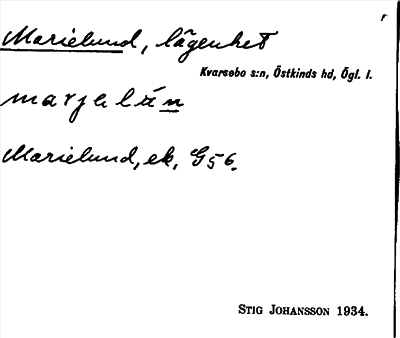 Marielund, lägenhet
Kvarsebo s:n, Östkinds hd, Ögl. l.
marjelún
Marielund, ek, G56.
STIG JOHANSSON 1934.